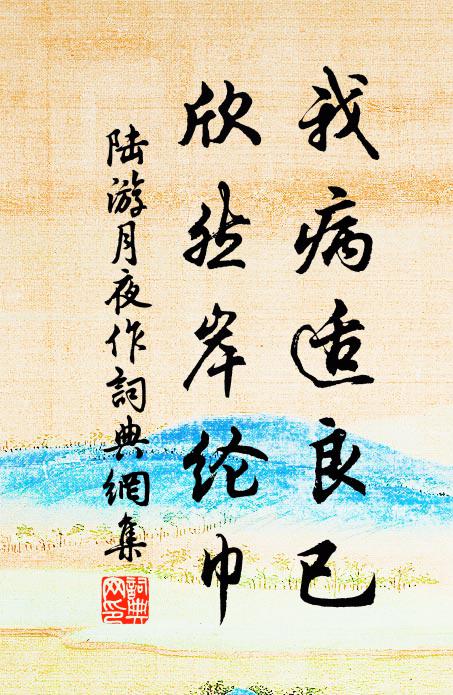 我病适良已
欣然岸纶巾
陆游月夜作詞典網集
詞典